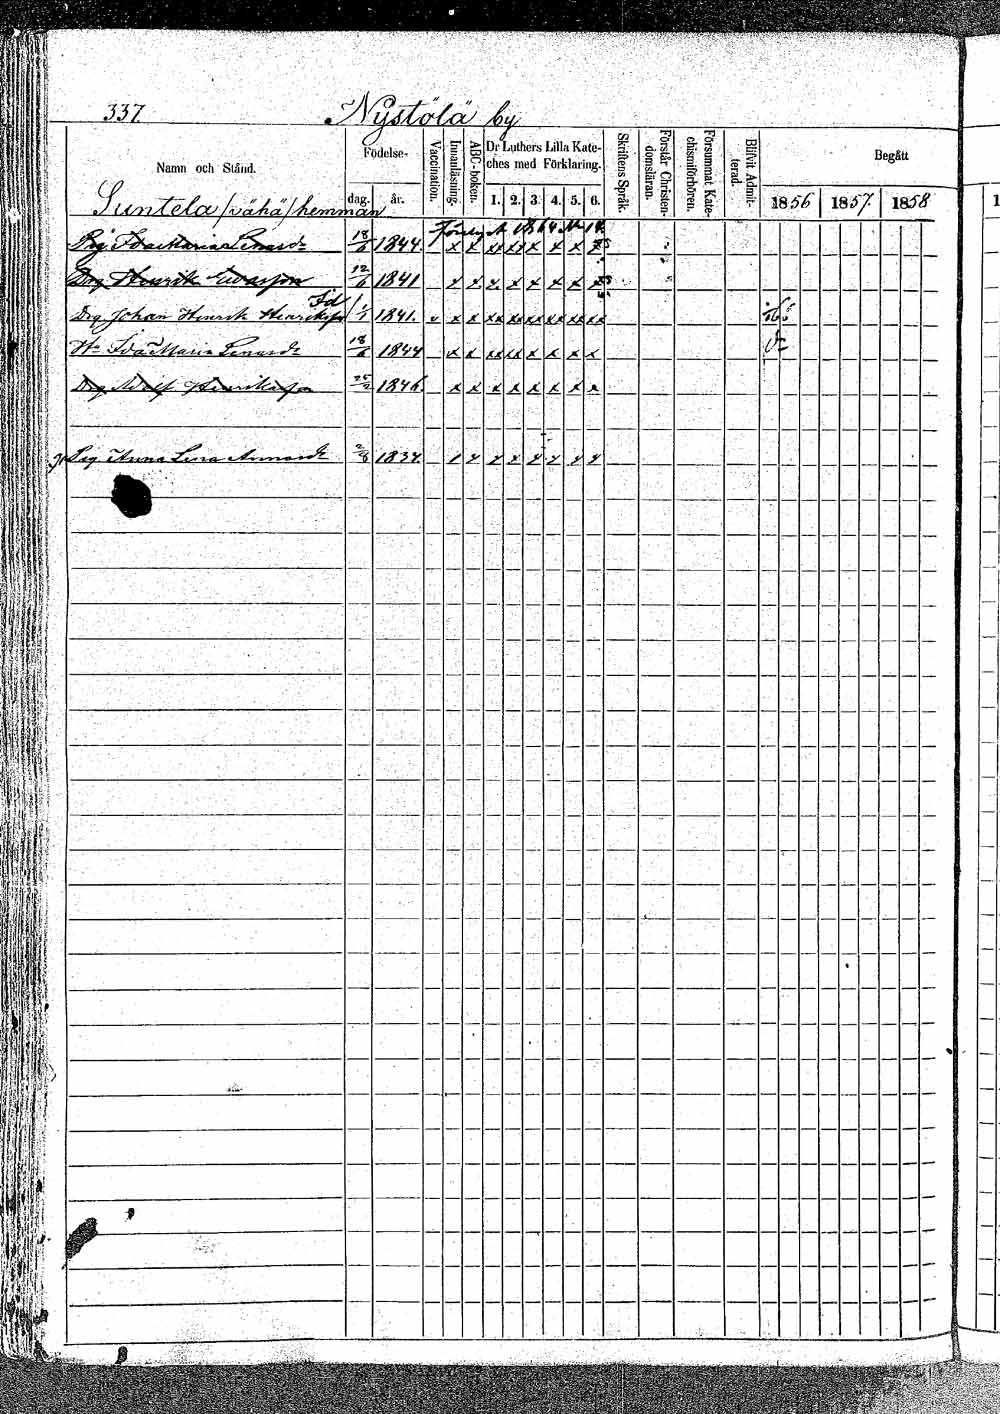 337. Nystölä by
Namn och Stånd. Födelse- dag. år. Vaccination. Innanläsning. ABC-boken. Dr Luthers Lilla Kateches med Förklaring. 1. 2. 3. 4. 5. 6. Skriftens Språk. Förstår Christendomsläran. Försummat Katechismiförhören. Blifvit Admitterad. Begått 1856 1857. 1858
Suntela /vähä/ hemman
1864
Pig Ida Maria Lenardsdr 18/6 1844. x x xx xx x x x x
Drg Henrik 12/6 1841 x x x x x x x x
Drg Johan Henrik Henriksson 1/1 1841. v x x xx xx xx xx xx xx
Hu Ida Maria Lenardsdr 18/6 1844 x x xx xx x x x x
Drg Adolf Henriksson 25/2 1846. x x x x x x x x
Pig Anna Lena 2/8 1834.